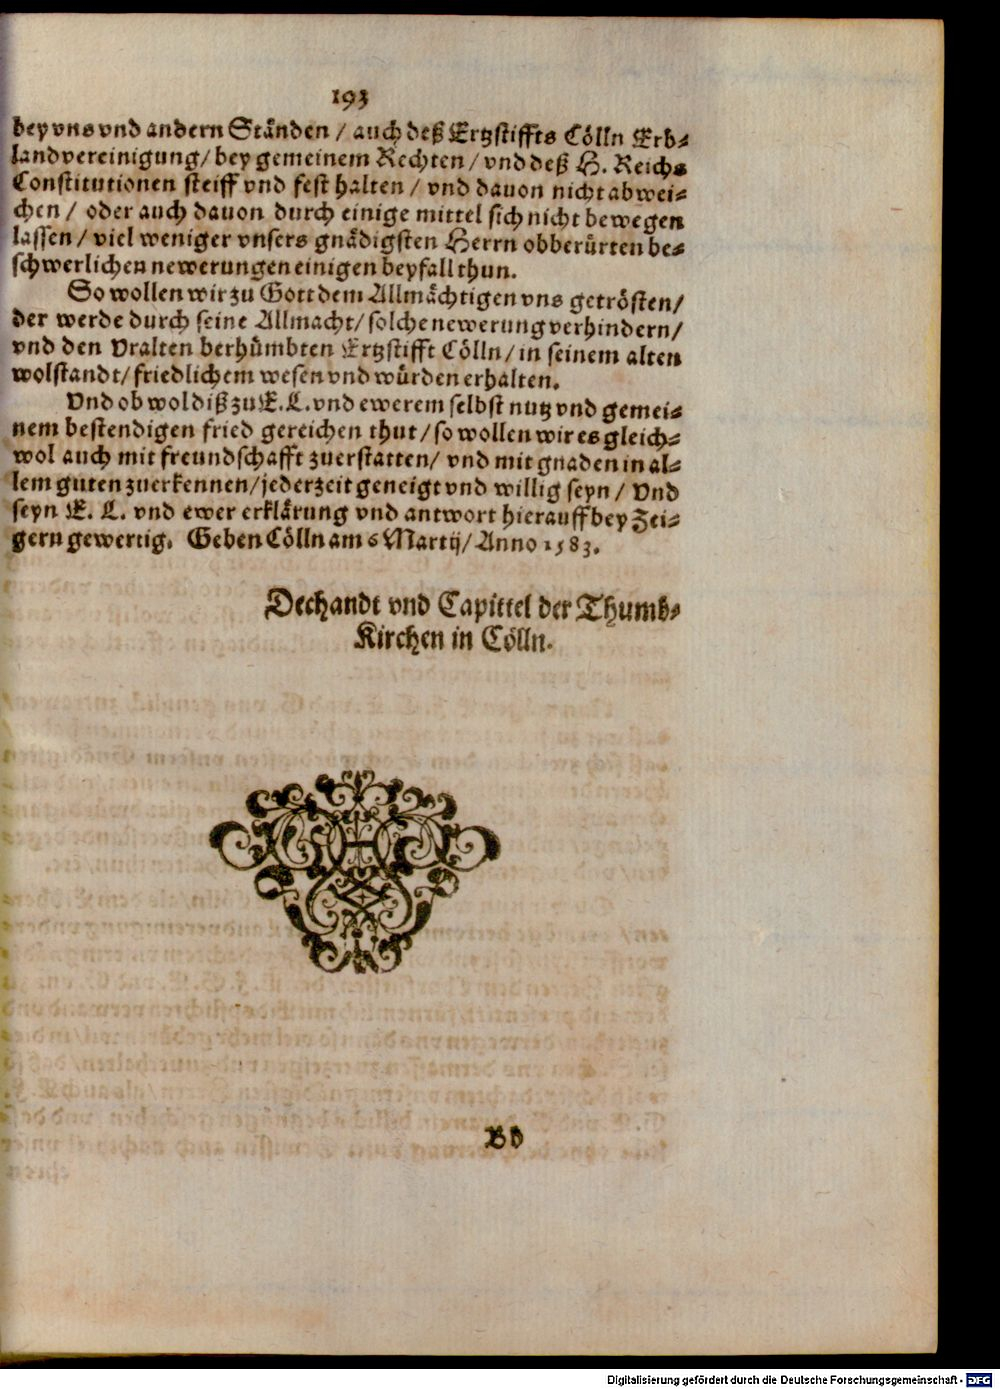 193
bey vns vnd andern Ständen / auch deß Ertzstiffts Cölln Erb-
landvereinigung / bey gemeinem Rechten / vnd deß H. Reichs
Constitutionen steiff vnd fest halten / vnd dauon nicht abwei-
chen / oder auch dauon durch einige mittel sich nicht bewegen
lassen / viel weniger vnsers gnädigsten Herrn obberürten be-
schwerlichen newerungen einigen beyfall thun.
So wollen wir zu Gott dem Allmächtigen vns getrösten /
der werde durch seine Allmacht / solche newerung verhindern /
vnd den Vralten berhümbten Ertzstifft Cölln / in seinem alten
wolstandt / friedlichem wesen vnd würden erhalten.
Vnd ob wol diß zu E. L. vnd ewerem selbst nutz vnd gemei-
nem bestendigen fried gereichen thut / so wollen wir es gleich-
wol auch mit freundschafft zuerstatten / vnd mit gnaden in al-
lem guten zuerkennen / jederzeit geneigt vnd willig seyn / Vnd
seyn E. L. vnd ewer erklärung vnd antwort hierauff bey Zei-
gern gewertig. Geben Cölln am 6 Martij / Anno 1583.
Dechandt vnd Capittel der Thumb-
Kirchen in Cölln.
Bb
Digitalisierung gefördert durch die Deutsche Forschungsgemeinschaft - DFG